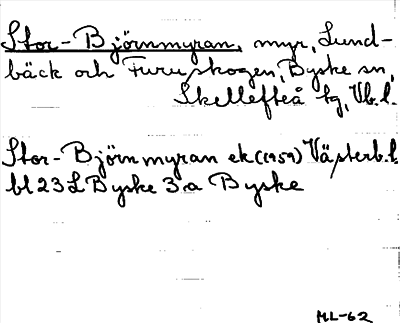 Stor-Björnmyran, myr, Lund-
bäck och Furuskogen, Byske sn,
Skellefteå tg, Vb.l.
Stor-Björnmyran ek (1959) Västerb.l.
bl 23 L Byske 3a Byske
ML-62